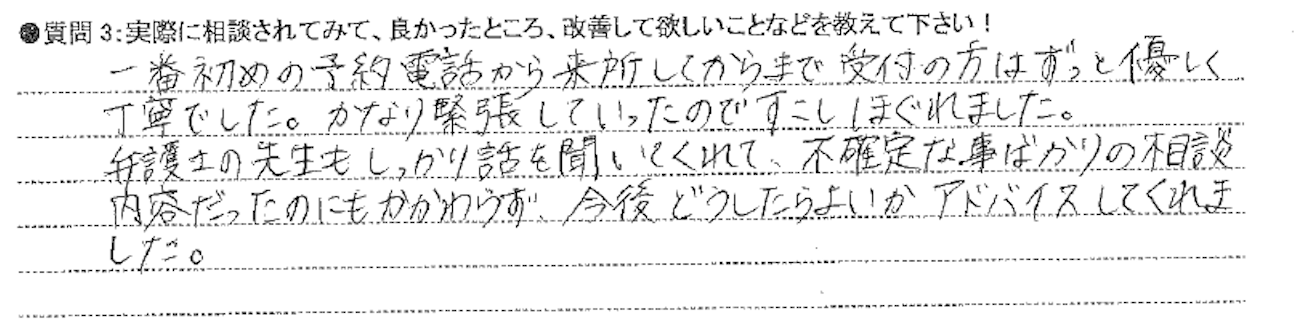 ●質問3:実際に相談されてみて、良かったところ、改善して欲しいことなどを教えて下さい!
一番初めの予約電話から来所してからまで受付の方はずっと優しく
丁寧でした。かなり緊張していったのですこしほぐれました。
弁護士の先生もしっかり話を聞いてくれて、不確定な事ばかりの相談
内容だったのにもかかわらず、今後どうしたらよいかアドバイスしてくれま
した。